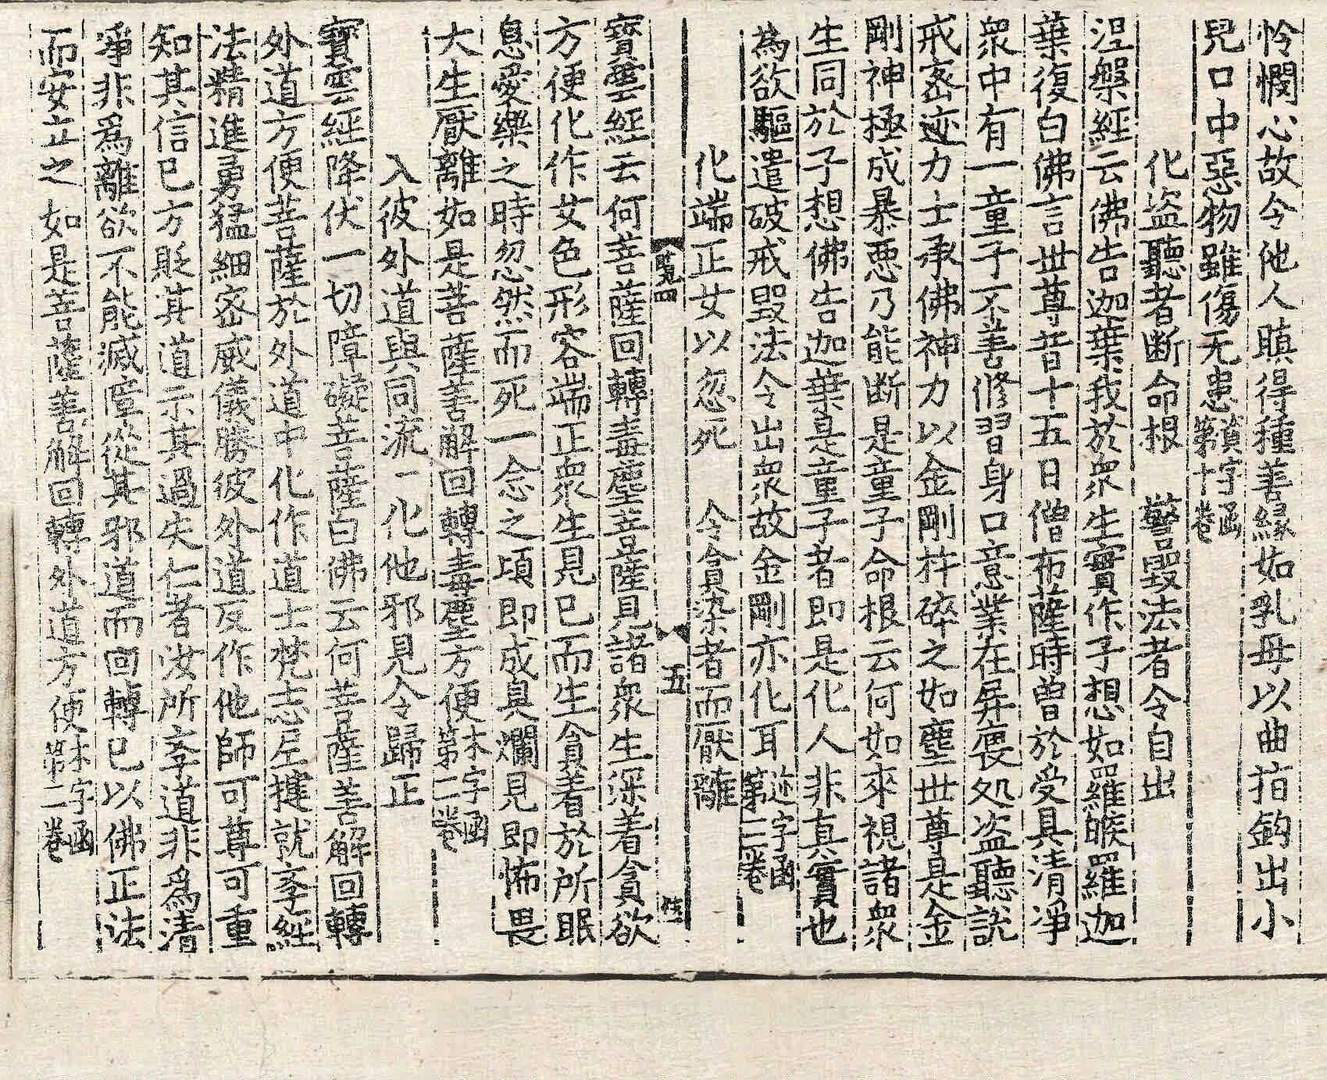 怜憫心故令他人瞋得種善緣如乳母以曲指鈎出小
兒口中惡物雖傷无患 第十卷
化盗聽者断命根 警毀法者令自出
涅槃經云佛告迦葉我於衆生實作子想如羅睺羅迦
葉復白佛言世尊昔十五日僧布薩時曾於受具清淨
衆中有一童子不善修習身口意業在屏隈処盗聽説
戒密迹力士承佛神力以金剛杵碎之如塵世尊是金
剛神極成暴悪乃能断是童子命根云何如來視諸衆
生同於子想佛告迦葉是童子者即是化人非真實也
為欲驅遣破戒毀法令出衆故金剛亦化耳 迹字函第二卷
化端正女以忽死 令貪染者而厭離
五
寳雲經云何菩薩回轉毒塵菩薩見諸衆生深着貪欲
方便化作女色形容端正衆生見已而生貪着於所眠
息愛樂之時忽然而死一念之頃即成臭爛見即怖畏
大生厭離如是菩薩善解回轉毒塵方便 木字函第二卷
入彼外道與同流 化他邪見令歸正
寳雲經降伏一切障礙菩薩白佛云何菩薩善解回轉
外道方便菩薩於外道中化作道士梵志尼揵就斈經
法精進勇猛細密威儀勝彼外道反作他師可尊可重
知其信已方貶其道示其過失仁者汝所斈道非爲清
淨非爲離欲不能滅度從其邪道而回轉已以佛正法
而安立之如是菩薩善解回轉外道方便 木字函第二卷